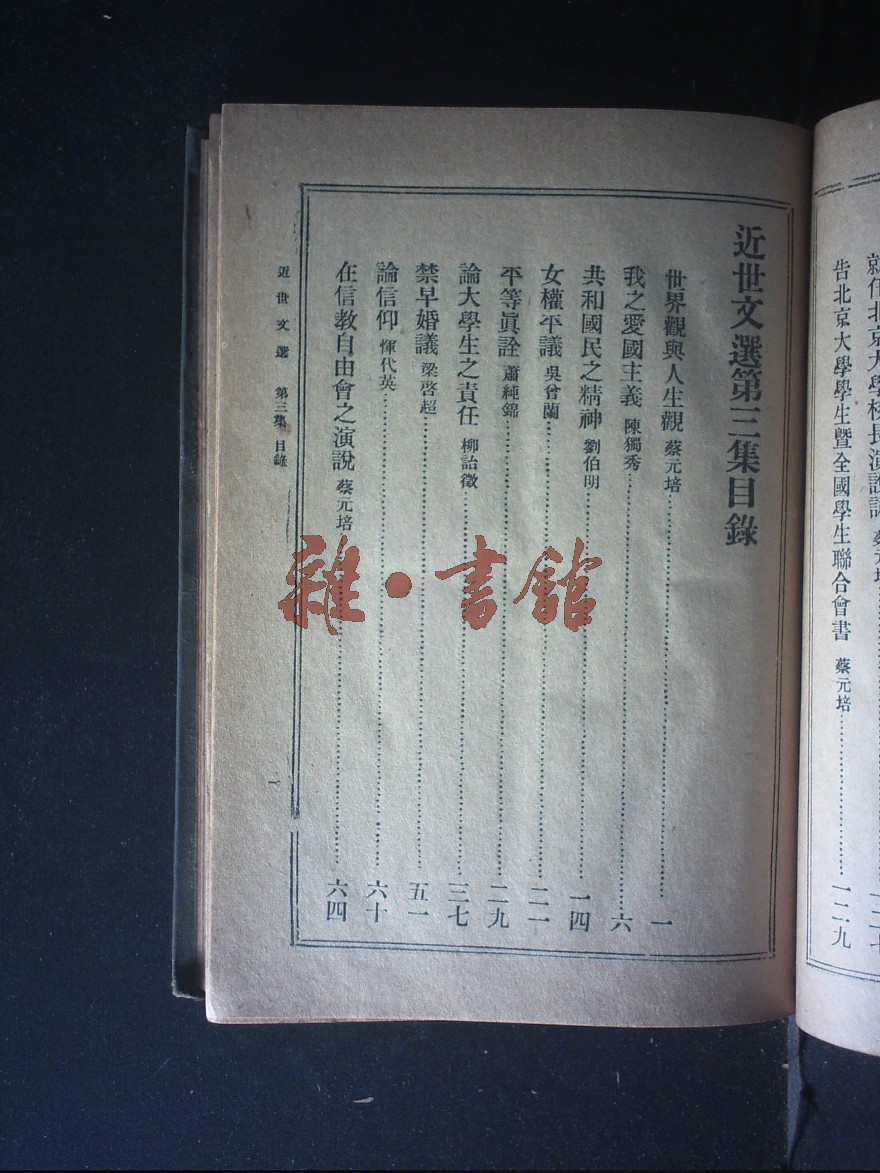 近世文選第三集目錄
世界觀與人生觀 蔡元培 一
我之愛國主義 陳獨秀 六
共和國民之精神 劉伯明 一四
女權平議 吳曾蘭 二一
平等眞詮 蕭純錦 二九
論大學生之責任 柳詒徵 三七
禁早婚議 梁啓超 五一
論信仰 惲代英 六十
在信教自由會之演說 蔡元培 六四
近世文選 第三集 目錄
一
就任北京大學校長演說詞 蔡元培
告北京大學學生曁全國學生聯合會書 蔡元培 一二九
雜·書館